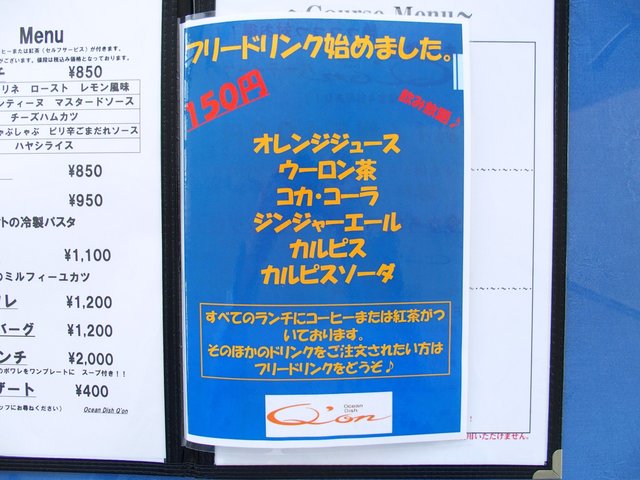 Menu
ーヒーまたは紅茶（セルフサービス）が付きます。
ざいます。値段は税込み価格となっております。
チ ¥850
リネ ロースト レモン風味
ンティーヌ マスタードソース
チーズハムカツ
ゃぶしゃぶ ピリ辛ごまだれソース
ハヤシライス
¥850
¥950
トの冷製パスタ
¥1,100
のミルフィーユカツ
レ ¥1,200
バーグ ¥1,200
ンチ ¥2,000
のポワレをワンプレートに スープ付き！！
ザート ¥400
ッフにお尋ねください）
Ocean Dish Q'on
~Course Menu~
フリードリンク始めました。
150円
飲み放題♪
オレンジジュース
ウーロン茶
コカ・コーラ
ジンジャーエール
カルピス
カルピスソーダ
すべてのランチにコーヒーまたは紅茶がつ
いております。
そのほかのドリンクをご注文されたい方は
フリードリンクをどうぞ♪
Ocean
Dish
Q'on
用いただけません。